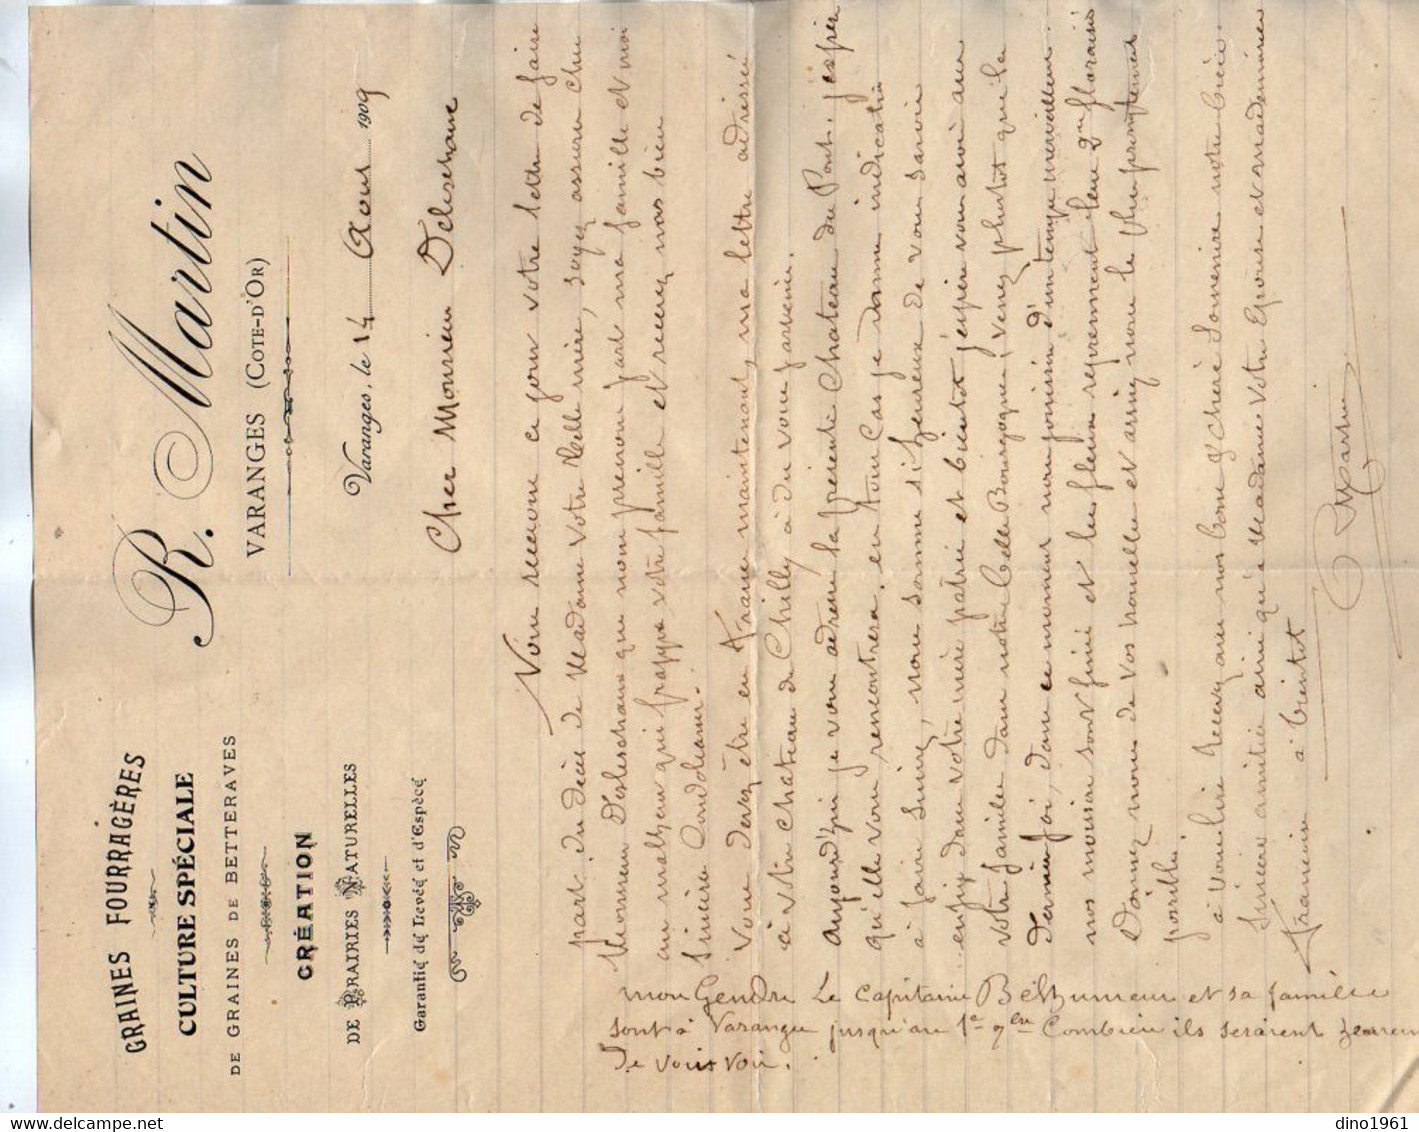 GRAINES FOURRAGÈRES
CULTURE SPÉCIALE
DE GRAINES DE BETTERAVES
CRÉATION
DE PRAIRIES NATURELLES
Garantie de Levée et d'Espèce
R. Martin
VARANGES (COTE-D'OR)
Varanges, le 14 Aout 1909
Cher Monsieur Deleschaux
Nous recevons ce jour votre lettre de faire
part du décès de Madame Votre Belle mère, soyez assuré cher
Monsieur Desleschaux que nous prenons part ma famille et moi
au malheur qui frappe votre famille et recevez nos bien
sincères Condoléances.
Vous devez être en France maintenant, ma lettre adressée
à votre Chateau de Chilly a du vous parvenir.
aujourd'hui je vous adresse la présente Chateau du Pont, j'espère
qu'elle vous rencontrera, en tous Cas je donne indication
à faire suivre, nous sommes si heureux de vous savoir
enfin dans votre mère patrie et bientot j'espère vous avoir avec
votre famille dans notre belle Bourgogne, Venez plutot que la
dernière fois, dans ce moment nous jouissons d'un temps merveilleux.
nos moissons sont finies et les fleurs reprennent leur 2me floraison
Donnez nous de vos nouvelles et arrivez nous le plus promptement
possible
à vous lire Recevez avec nos bons et chers Souvenirs notre bien
sincère amitié ainsi qu'à Madame Votre Epouse et mademoiselle
Francine à bientot
R Martin
mon Gendre Le Capitaine Béthumeux et sa famille
sont à Varanges jusqu'au 1er 7bre Combien ils seraient heureux
de vous voir.
dino1961